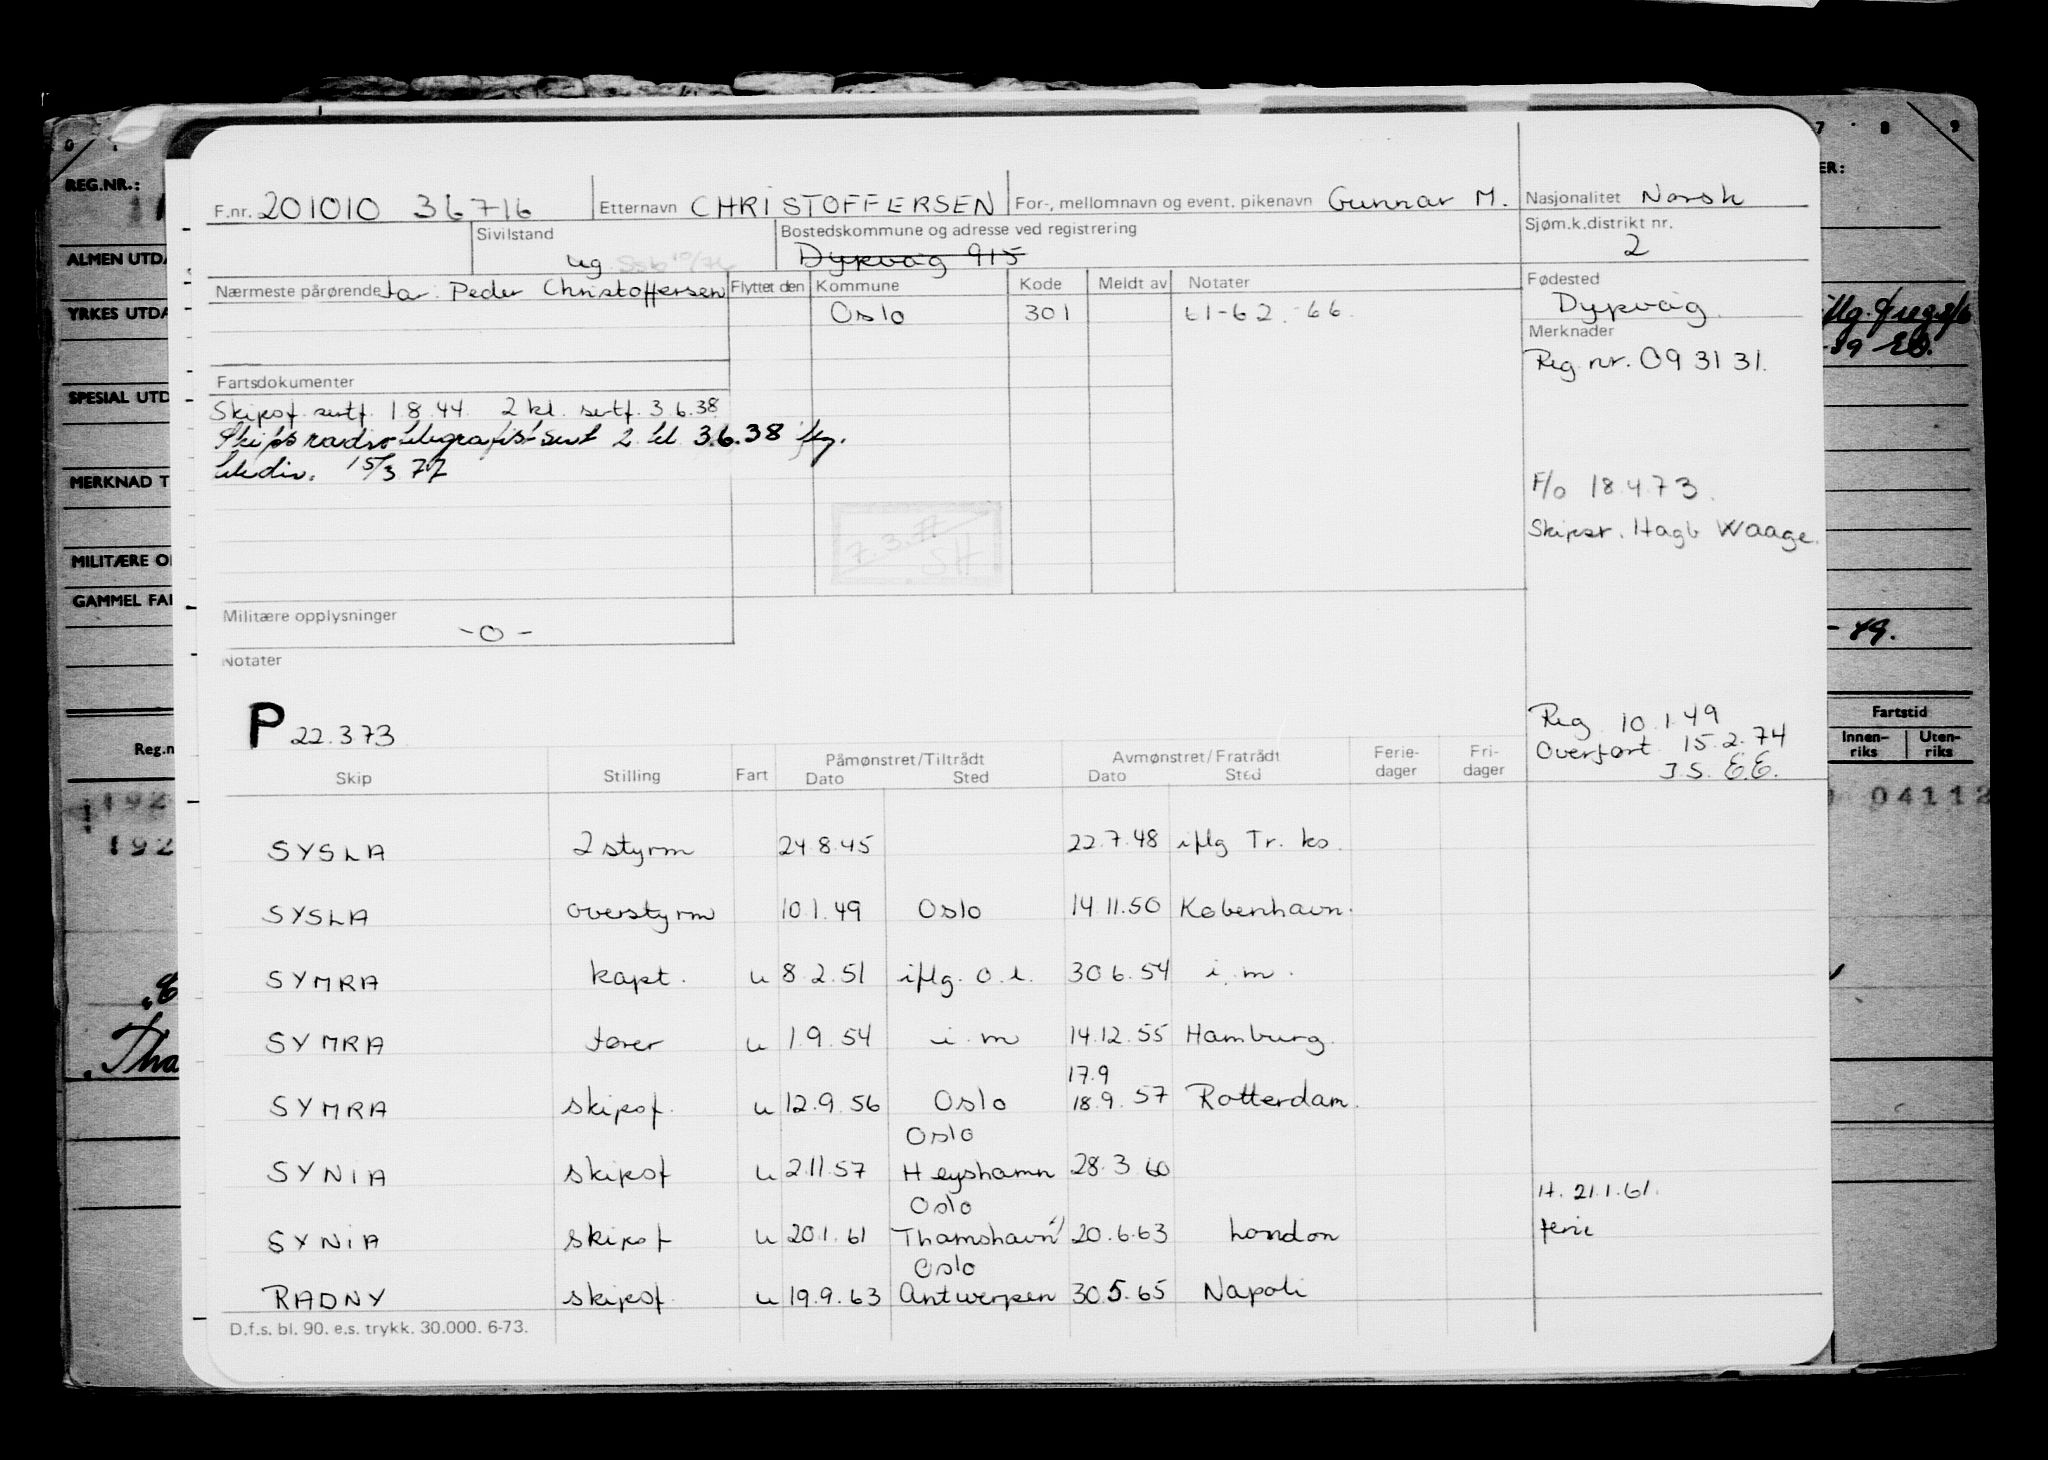 REG.NR.:
ALMEN UTDA
YRKES UTDA
SPESIAL UTD
MERKNAD T
MILITÆRE O
GAMMEL FA
Reg.n
F.nr. 201010 36716 Etternavn CHRISTOFFERSEN For-, mellomnavn og event. pikenavn Gunnar M. Nasjonalitet Norsk
Sivilstand ug Bostedskommune og adresse ved registrering Dypvåg 915 Sjøm.k.distrikt nr. 2
Nærmeste pårørende far: Peder Christoffersen Flyttet den Kommune Kode Meldt av Notater Fødested
Oslo 301 61-62-66. Dypvåg.
Merknader
Reg nr. 09 31 31.
Fartsdokumenter
Skipsf. sertf. 1.8.44. 2 kl. sertf. 3.6.38
Skipsradiotelegrafist sert 2 kl 3.6.38 iflg.
teledir. 15/3 77
7.3.77
SH
F/o 18.4.73.
Skipsr. Hagb Waage.
Militære opplysninger
-0-
Notater
P 22.373
Reg. 10.1.49
Overført 15.2.74
J.S. E.E.
Skip Stilling Fart Påmønstret/Tiltrådt Dato Sted Avmønstret/Fratrådt Dato Sted Ferie-dager Fri-dager
SYSLA 2 styrm 24.8.45 22.7.48 iflg Tr. ko.
SYSLA overstyrm 10.1.49 Oslo 14.11.50 København.
SYMRA kapt. u 8.2.51 iflg. o.l. 30.6.54 i.m.
SYMRA fører u 1.9.54 i.m 14.12.55 Hamburg.
17.9
SYMRA skipsf. u 12.9.56 Oslo 18.9.57 Rotterdam.
Oslo
SYNIA skipsf u 2.11.57 Heyshamn 28.3.60
Oslo H. 21.1.61.
SYNIA skipsf u 20.1.61 Thamshavn 20.6.63 London ferie
Oslo
RADNY skipsf. u 19.9.63 Antwerpen 30.5.65 Napoli
D.f.s. bl. 90. e.s. trykk. 30.000. 6-73.
7 8 9
ER:
- 49.
Fartstid
Innen-riks Uten-riks
04112
192
192
Tha